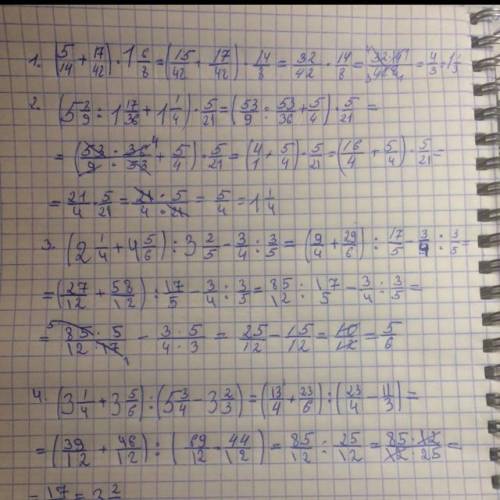 1. (5/14 + 17/42) · 1 6/8 = (15/42 + 17/42) · 14/8 = 32/42 · 14/8 = 32·14/42·8 = 4/3 = 1 1/3
2. (5 8/9 : 1 17/36 + 1 1/4) · 5/21 = (53/9 : 53/36 + 5/4) · 5/21 =
= (53/9 · 36/53 + 5/4) · 5/21 = (4/1 + 5/4) · 5/21 = (16/4 + 5/4) · 5/21 =
= 21/4 · 5/21 = 21 · 5/4 · 21 = 5/4 = 1 1/4
3. (2 1/4 + 4 5/6) : 3 2/5 − 3/4 : 3/5 = (9/4 + 29/6) : 17/5 − 3/4 : 3/5 =
= (27/12 + 58/12) : 17/5 − 3/4 : 3/5 = 85/12 : 17/5 − 3/4 : 3/5 =
= 85 · 5/12 · 17 − 3 · 5/4 · 3 = 25/12 − 15/12 = 10/12 = 5/6
4. (3 1/4 + 3 5/6) : (5 3/4 − 3 2/3) = (13/4 + 23/6) : (23/4 − 11/3) =
= (39/12 + 46/12) : (69/12 − 44/12) = 85/12 : 25/12 = 85 · 12/12 · 25 =
= 17 = 3 2